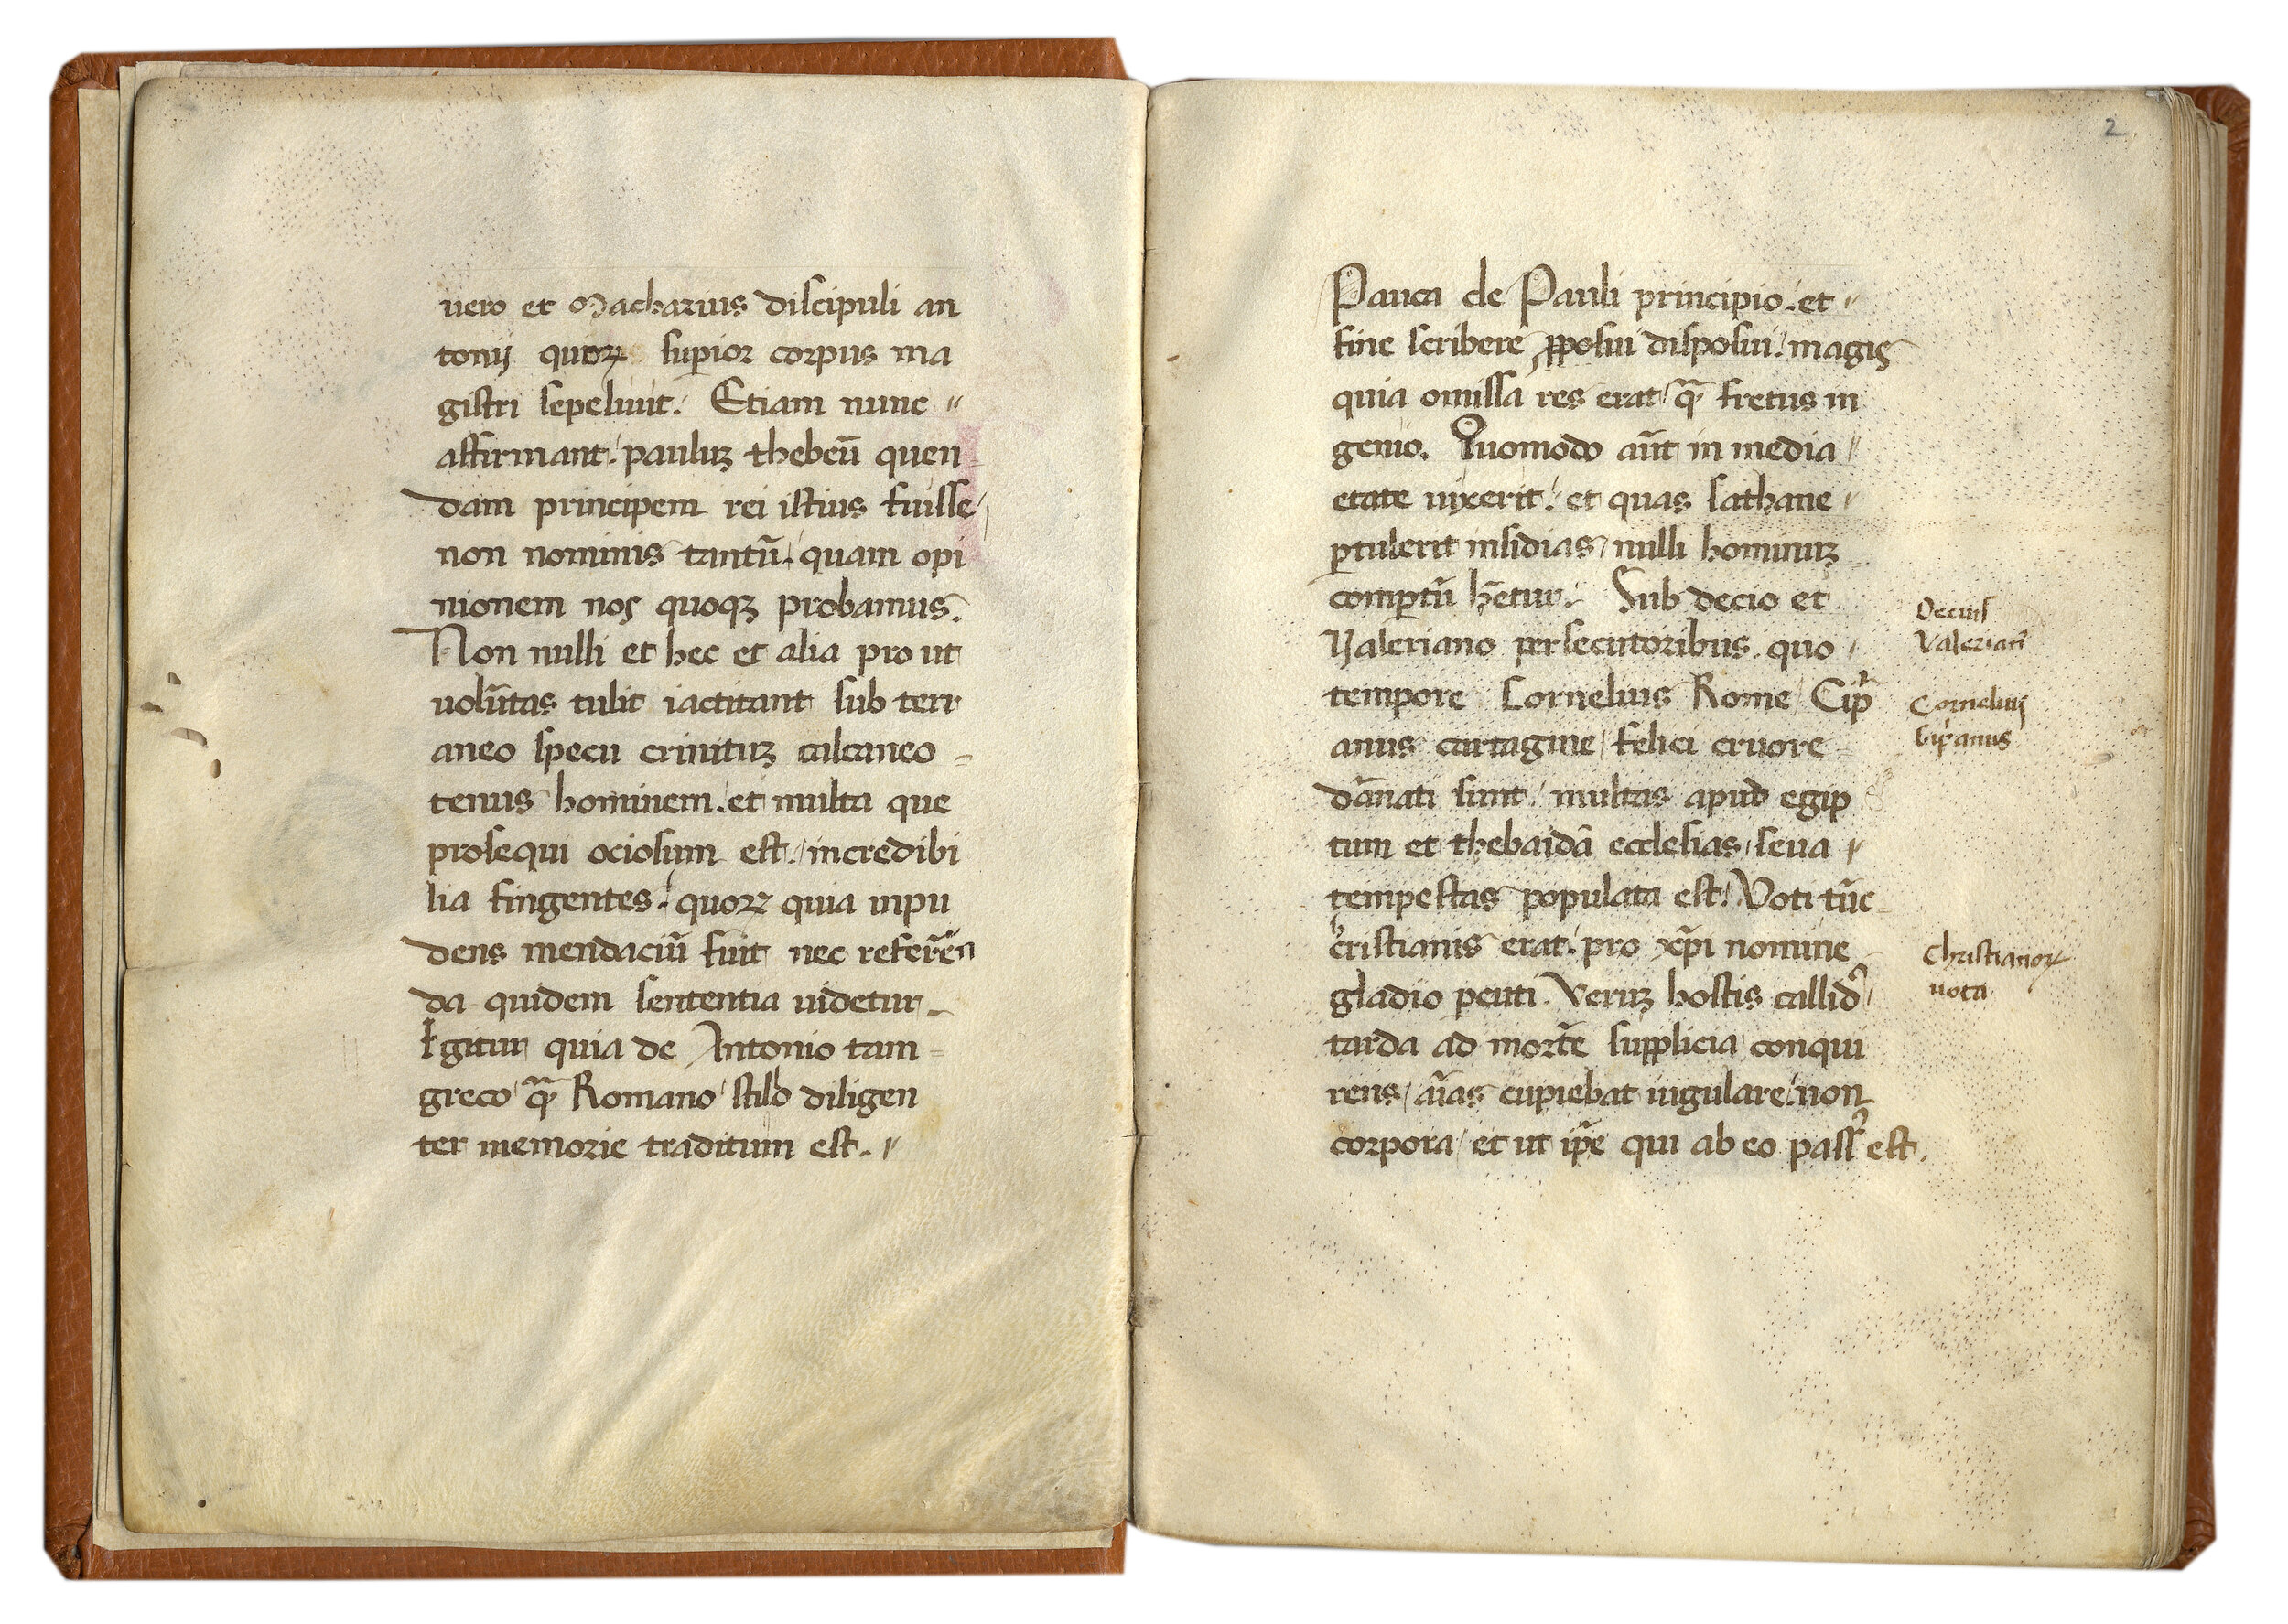 uero et Macharius discipuli an
tonij quorꝝ suꝑior corpus ma
gistri sepeliuit. Etiam nunc
affirmant. pauluꝫ thebeū quen
dam principem rei istius fuisse
non nominis tantū. quam opi
nionem nos quoqꝫ probamus.
Non nulli et hec et alia pro ut
uolūtas tulit iactitant sub terr
aneo specu crinituꝫ calcaneo
tenus hominem. et multa que
prosequi ociosum est. incredibi
lia fingentes. quorꝝ quia inpu
dens mendaciū fuit nec referēn
da quidem sententia uidetur
Igitur quia de Antonio tam
greco q̄ Romano stilo diligen
ter memorie traditum est.
2
Pauca de Pauli principio. et
fine scribere ꝓposui disposui. magis
quia omissa res erat q̄ fretus in
genio. Quomodo aūt in media
etate uixerit. et quas sathane
ꝑtulerit insidias nulli hominuꝫ
comꝑtū hetur̄. Sub decio et
Valeriano persecutoribus. quo
tempore Cornelius Rome Cipͥ
anus cartagine felici cruore
dānati sunt. multas apud egip
tum et thebaidā ecclesias seua
tempestas populata est. Voti tūc
cͪristianis erat. pro xp̄i nomine
gladio ꝑcuti. Veruꝫ hostis callidꝰ
tarda ad mortē supplicia conqui
rens aīas cupiebat iugulare. non
corpora et ut ip̄e qui ab eo passꝰ est.
Decius
Valerianꝰ
Cornelius
Cipͥanus
Christianorꝝ
uota